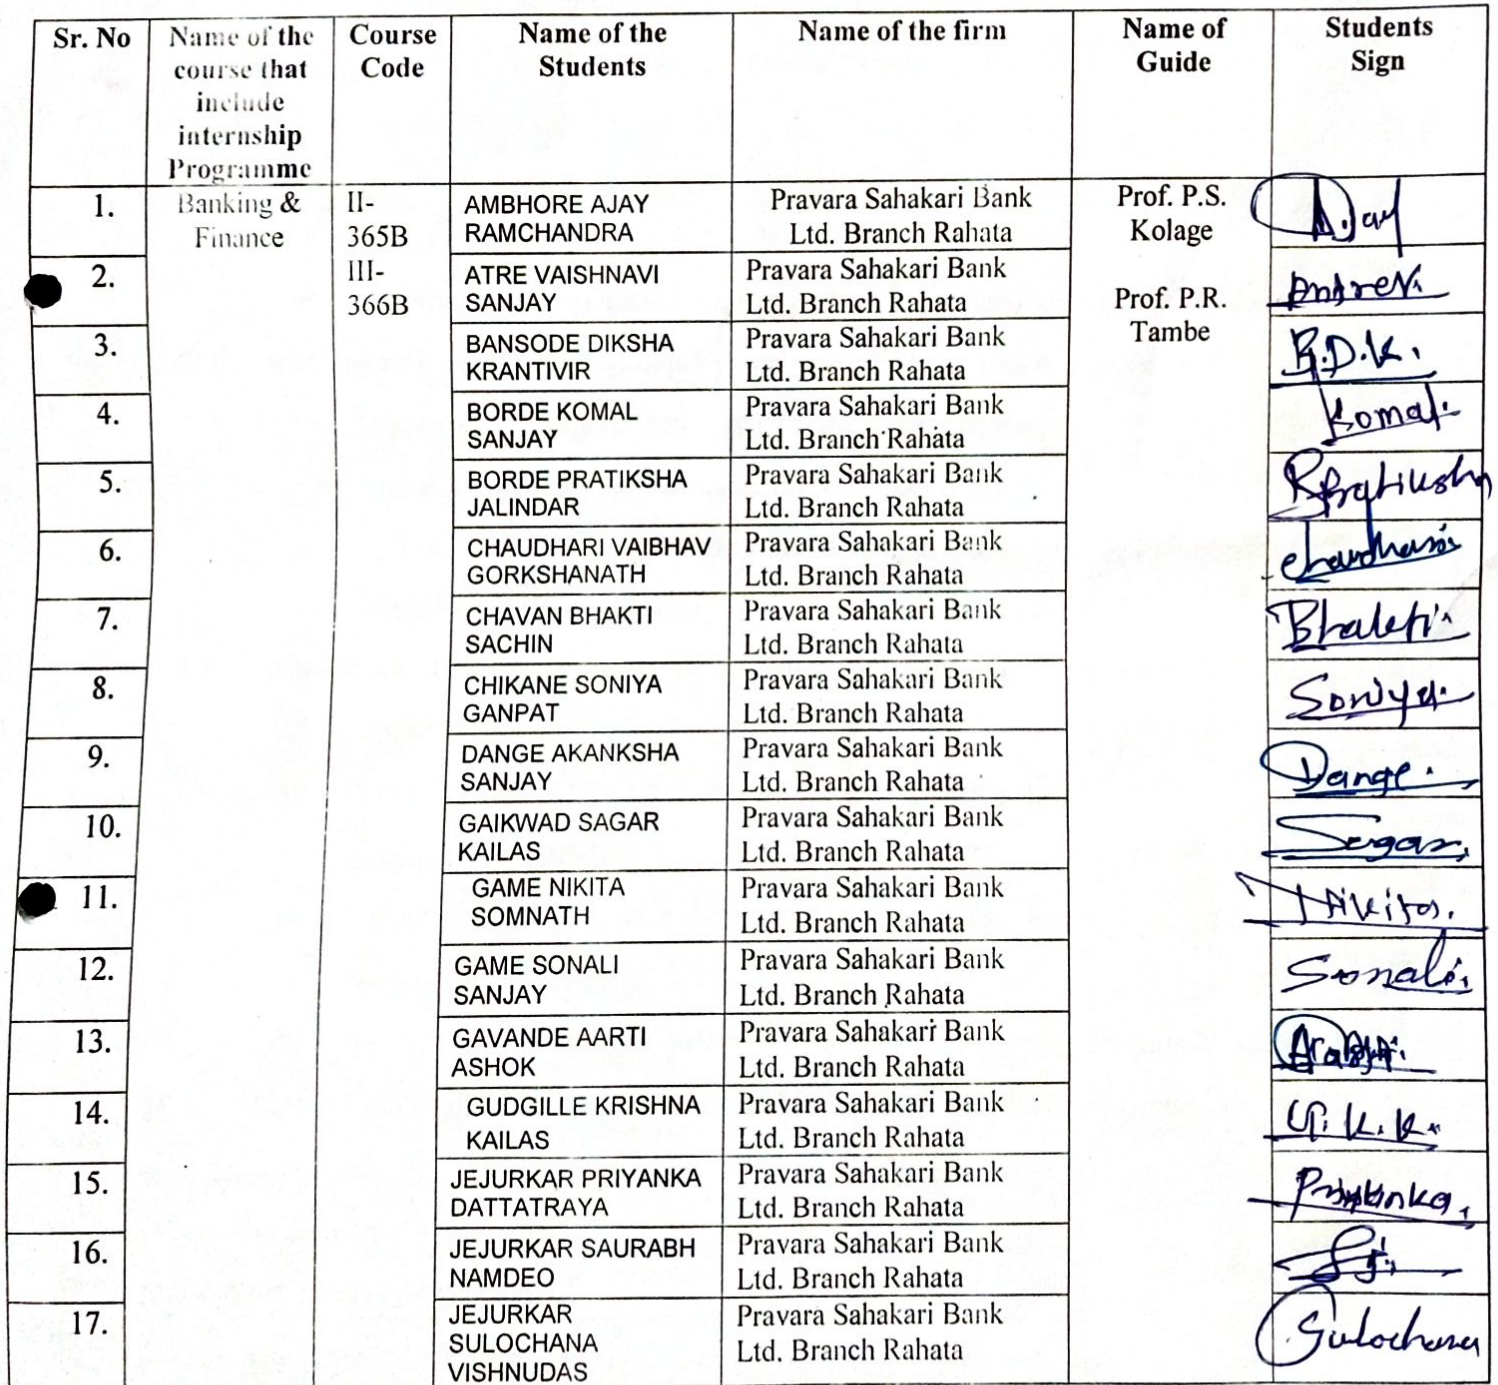 Sr. No
Name of the
course that
include
internship
Programme
Course
Code
Name of the
Students
Name of the firm
Name of
Guide
Students
Sign
1.
Banking &
Finance
II-
365B
III-
366B
AMBHORE AJAY
RAMCHANDRA
Pravara Sahakari Bank
Ltd. Branch Rahata
Prof. P.S.
Kolage
Prof. P.R.
Tambe
Ajay
2.
ATRE VAISHNAVI
SANJAY
Pravara Sahakari Bank
Ltd. Branch Rahata
3.
BANSODE DIKSHA
KRANTIVIR
Pravara Sahakari Bank
Ltd. Branch Rahata
B.D.K.
4.
BORDE KOMAL
SANJAY
Pravara Sahakari Bank
Ltd. Branch Rahata
Komal
5.
BORDE PRATIKSHA
JALINDAR
Pravara Sahakari Bank
Ltd. Branch Rahata
6.
CHAUDHARI VAIBHAV
GORKSHANATH
Pravara Sahakari Bank
Ltd. Branch Rahata
7.
CHAVAN BHAKTI
SACHIN
Pravara Sahakari Bank
Ltd. Branch Rahata
Bhakti
8.
CHIKANE SONIYA
GANPAT
Pravara Sahakari Bank
Ltd. Branch Rahata
Soniya
9.
DANGE AKANKSHA
SANJAY
Pravara Sahakari Bank
Ltd. Branch Rahata
Dange
10.
GAIKWAD SAGAR
KAILAS
Pravara Sahakari Bank
Ltd. Branch Rahata
Sagar
11.
GAME NIKITA
SOMNATH
Pravara Sahakari Bank
Ltd. Branch Rahata
Nikita
12.
GAME SONALI
SANJAY
Pravara Sahakari Bank
Ltd. Branch Rahata
Sonali
13.
GAVANDE AARTI
ASHOK
Pravara Sahakari Bank
Ltd. Branch Rahata
14.
GUDGILLE KRISHNA
KAILAS
Pravara Sahakari Bank
Ltd. Branch Rahata
G.K.K.
15.
JEJURKAR PRIYANKA
DATTATRAYA
Pravara Sahakari Bank
Ltd. Branch Rahata
Priyanka
16.
JEJURKAR SAURABH
NAMDEO
Pravara Sahakari Bank
Ltd. Branch Rahata
17.
JEJURKAR
SULOCHANA
VISHNUDAS
Pravara Sahakari Bank
Ltd. Branch Rahata
Sulochana